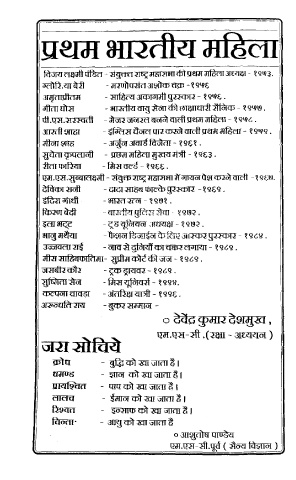 प्रथम भारतीय महिला
विजय लक्ष्मी पंडित - संयुक्त राष्ट्र महासभा की प्रथम महिला अध्यक्ष - १९५३.
ग्लोरिया बेरी - मरणोपरांत अशोक चक्र - १९७६
अमृताप्रीतम - साहित्य अकादमी पुरस्कार - १९५६.
गीता घोस - भारतीय वायु सेना की छाताधारी सैनिक - १९५७.
पी.एस.सरस्वती - मेजर जनरल बनने वाली प्रथम महिला - १९५८.
आरती शाहा - इंग्लिस चैनल पार करने वाली प्रथम महिला - १९५९.
मीना शाह - अर्जुन अवार्ड विजेता - १९६१.
सुचेता कृपलानी - प्रथम महिला मुख्य मंत्री - १९६३.
रीता फारिया - मिस वर्ल्ड - १९६६.
एम.एस.सुब्बालक्ष्मी - संयुक्त राष्ट्र महासभा में गायन पेश करने वाली - १९६७.
देविका रानी - दादा साहब फाल्के पुरस्कार - १९६९.
इंदिरा गांधी - भारत रत्न - १९७१.
किरण बेदी - भारतीय पुलिस सेवा - १९७२.
इला भट्ट - ट्रेड यूनियन अध्यक्ष - १९७२.
भानु मथैया - फैशन डिजाईन के लिए आस्कर पुरस्कार - १९८४.
उज्जवला राई - नाव से दुनियाँ का चक्कर लगाया - १९८९.
मीस साहिबफातिमा - सुप्रीम कोर्ट की जज - १९८९.
जसबीर कौर - ट्रक ड्रायवर - १९८९.
सुष्मिता सेन - मिस यूनिवर्स - १९९४.
कल्पना चावडा - अंतरिक्ष यात्री - १९९६.
अरून्धति राय - बुकर सम्मान -
० देवेंद्र कुमार देशमुख,
एम.एस-सी.(रक्षा - अध्ययन)
जरा सोचिये
क्रोध - बुद्धि को खा जाता है।
घमण्ड - ज्ञान को खा जाता है।
प्रायश्चित - पाप को खा जाता है।
लालच - ईमान को खा जाता है।
रिश्वत - इन्साफ को खा जाता है।
चिन्ता - आयु को खा जाता है
० आशुतोष पाण्डेय
एम.एस-सी.पूर्व ( सैन्य विज्ञान )